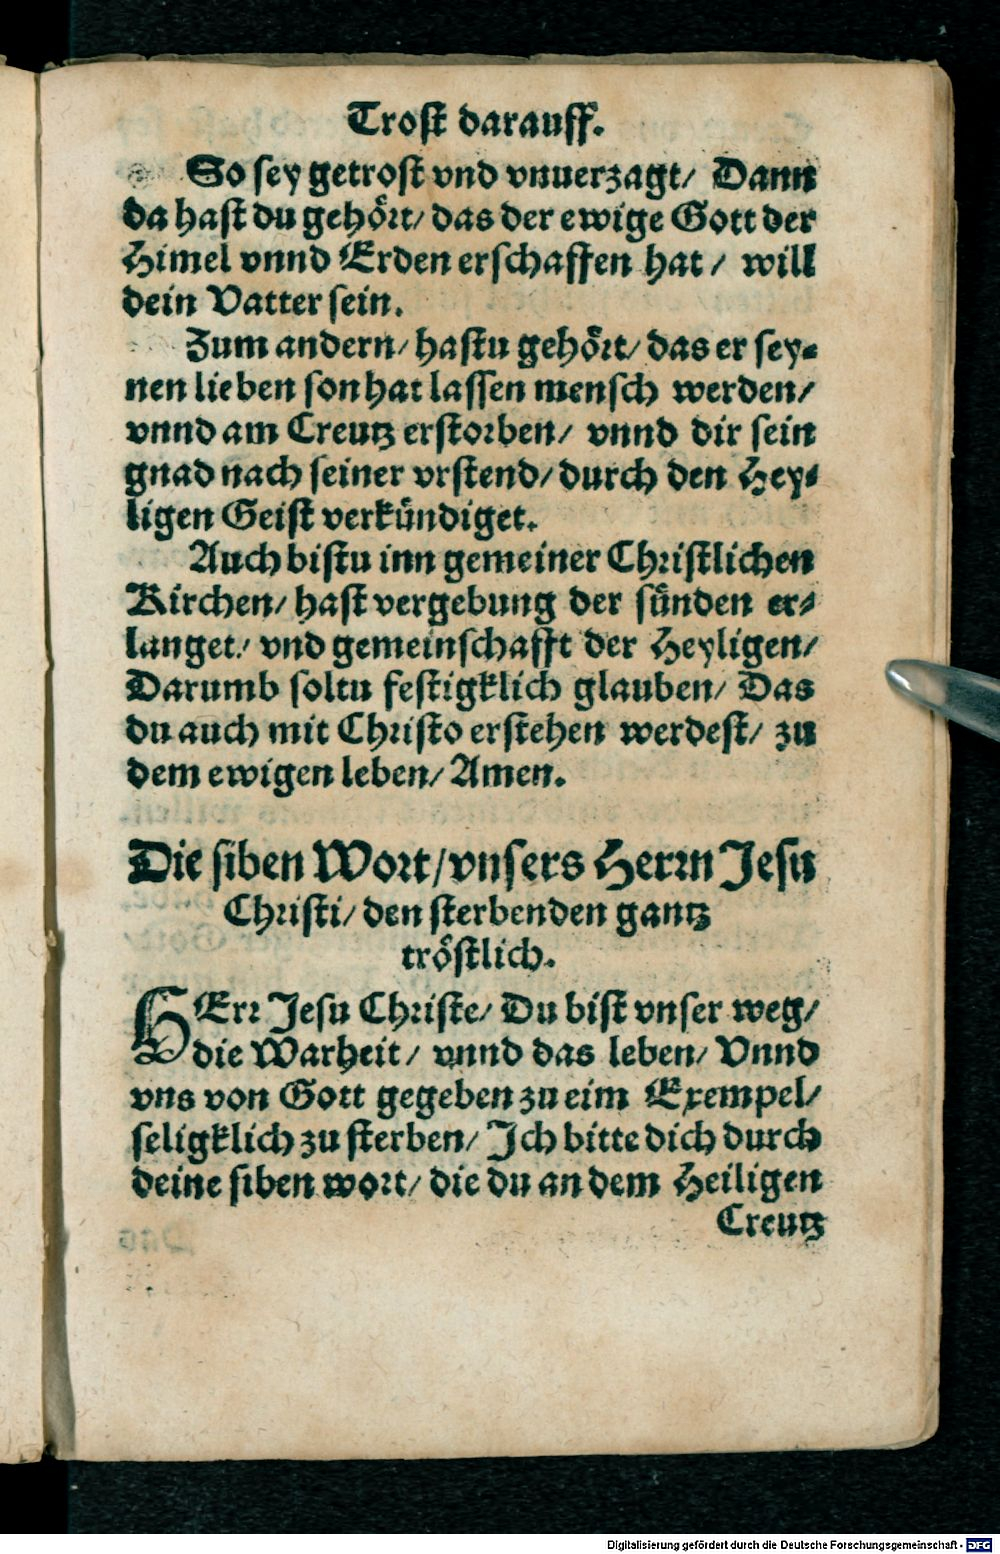 Trost darauff.
So sey getrost vnd vnuerzagt/ Dann
da hast du gehoͤrt/ das der ewige Gott der
Himel vnnd Erden erschaffen hat/ will
dein Vatter sein.
Zum andern/ hastu gehoͤrt/ das er sey⸗
nen lieben son hat lassen mensch werden/
vnnd am Creutz erstorben/ vnnd dir sein
gnad nach seiner vrstend/ durch den Hey⸗
ligen Geist verkündiget.
Auch bistu inn gemeiner Christlichen
Kirchen/ hast vergebung der sünden er⸗
langet/ vnd gemeinschafft der Heyligen/
Darumb soltu festigklich glauben/ Das
du auch mit Christo erstehen werdest/ zu
dem ewigen leben/ Amen.
Die siben Wort/ vnsers Herrn Jesu
Christi/ den sterbenden gantz
troͤstlich.
HErr Jesu Christe/ Du bist vnser weg/
die Warheit/ vnnd das leben/ Vnnd
vns von Gott gegeben zu eim Exempel/
seligklich zu sterben/ Ich bitte dich durch
deine siben wort/ die du an dem Heiligen
Creutz
Digitalisierung gefördert durch die Deutsche Forschungsgemeinschaft - DFG